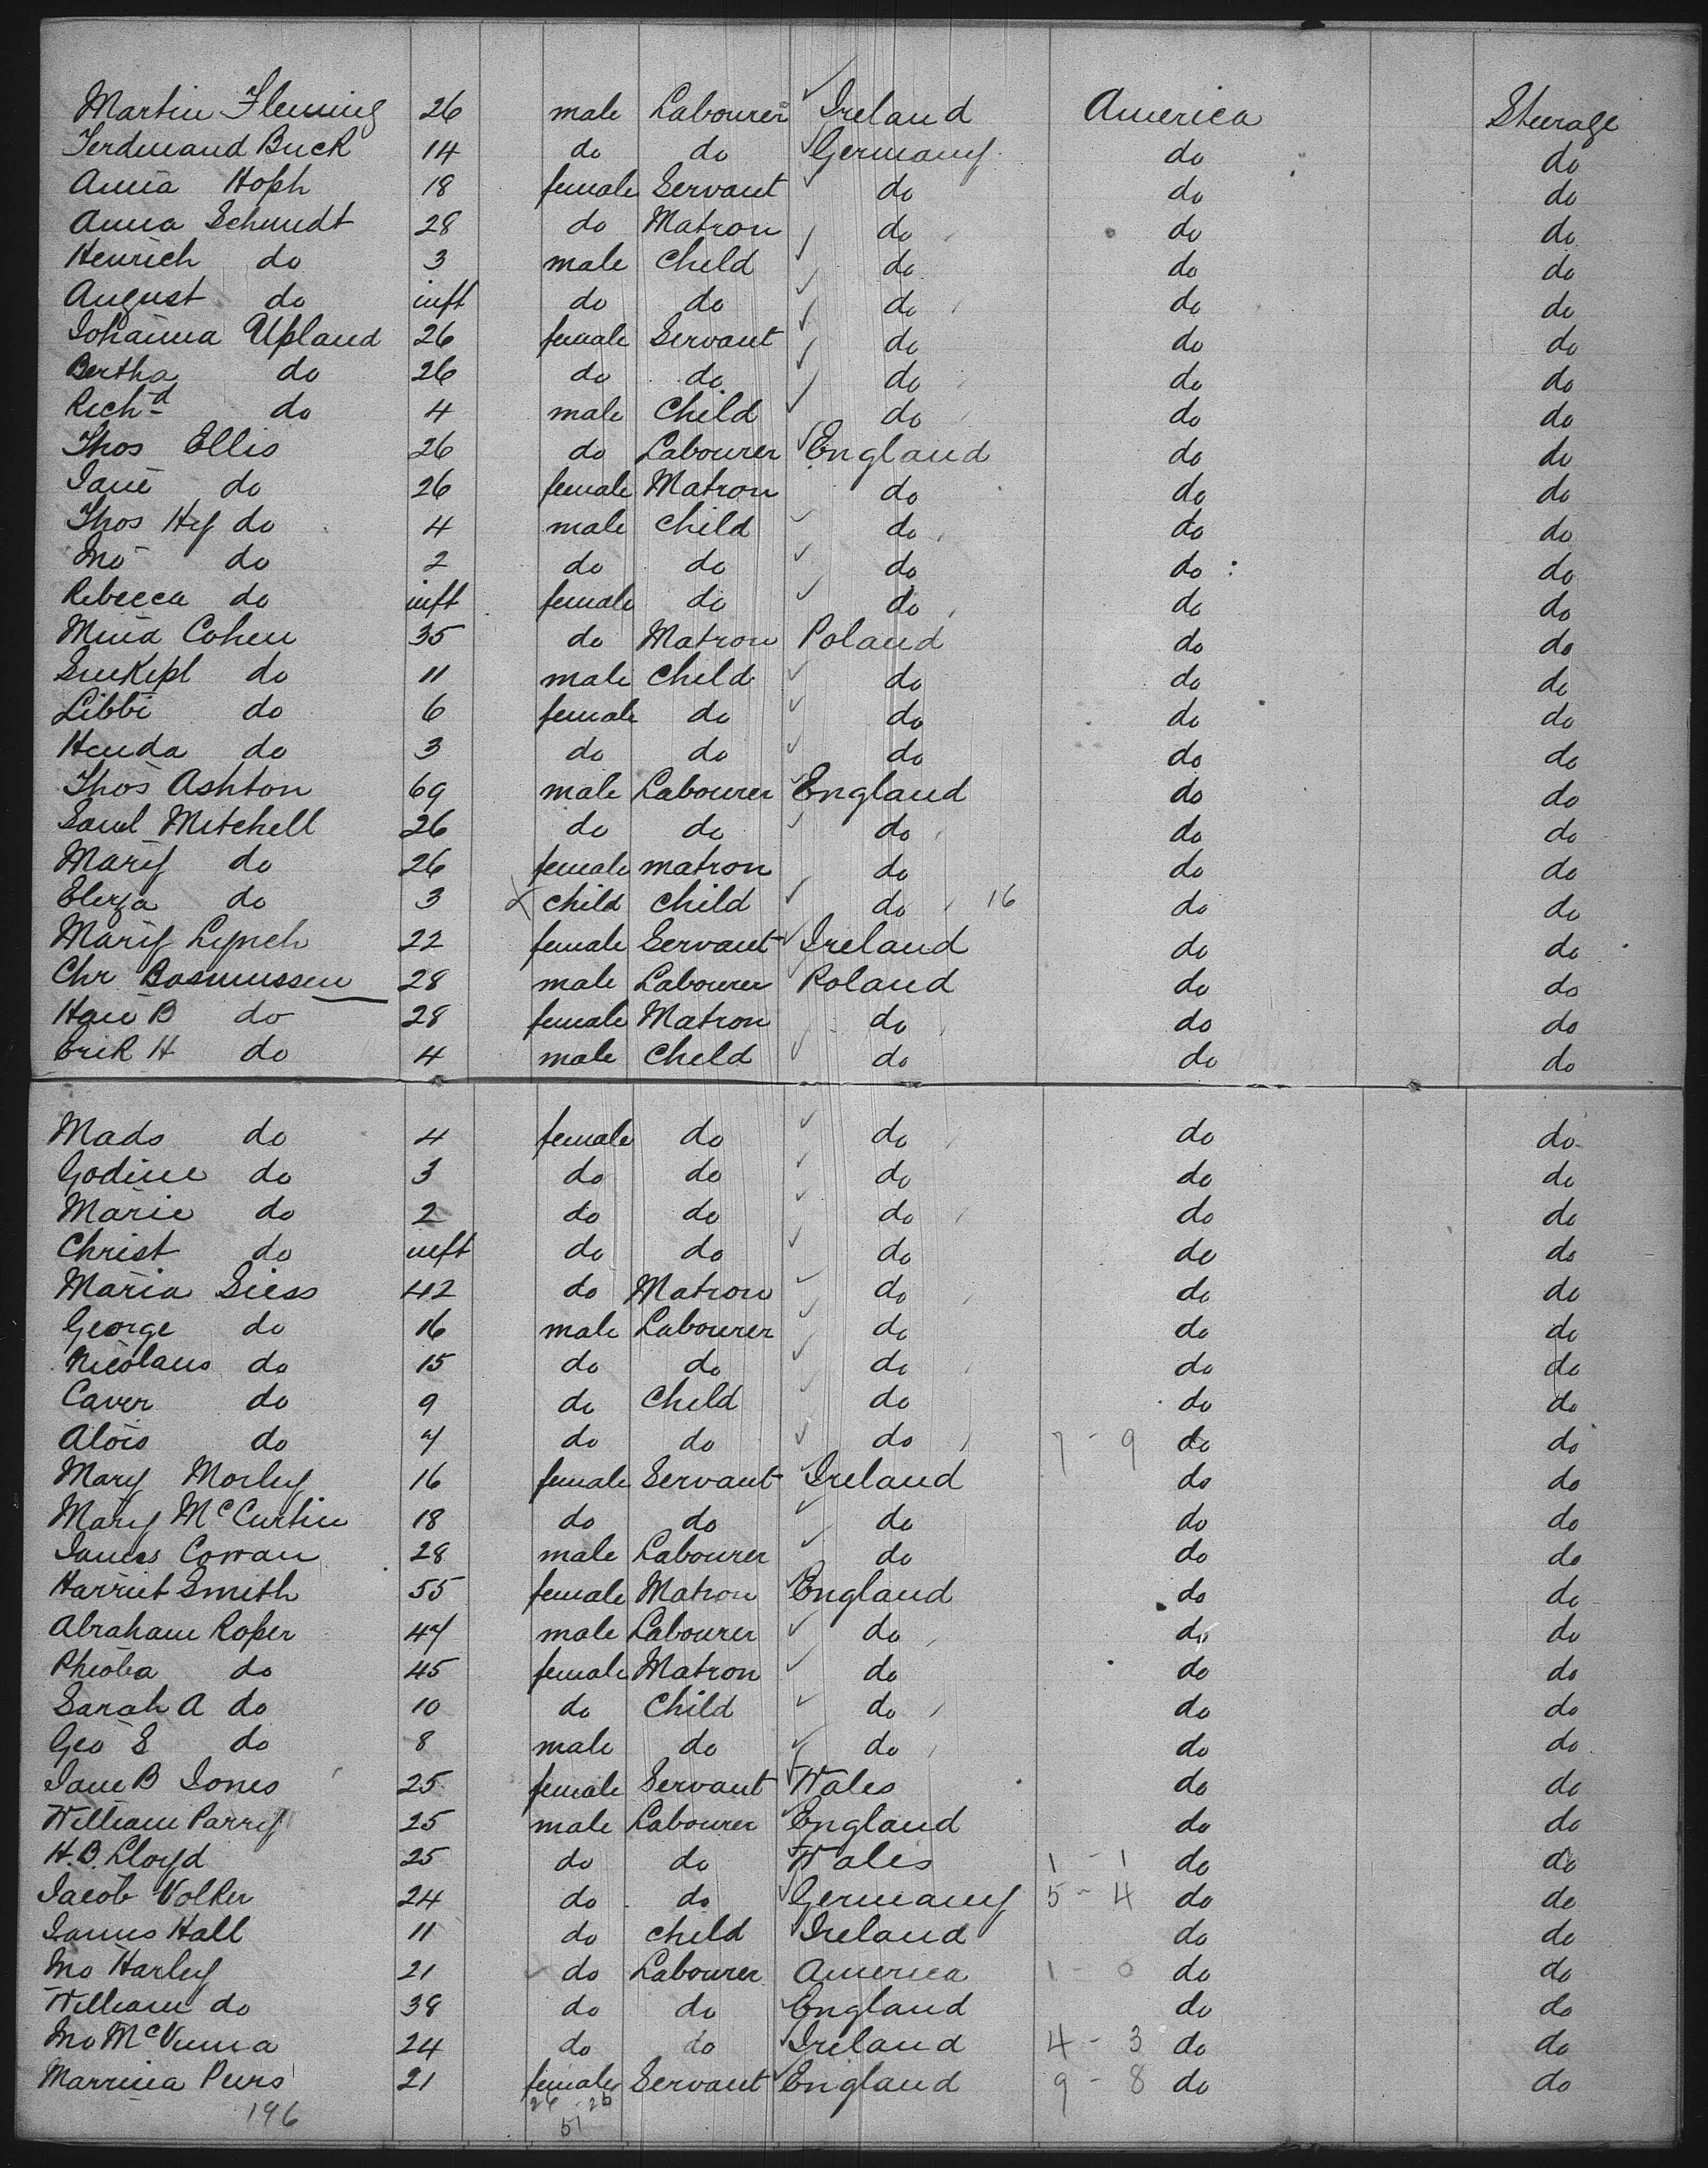 Martin Fleming 26 male Labourer Ireland America Steerage
Ferdinand Buck 14 do do Germany do do
Anna Hoph 18 female Servant do do do
Anna Schmidt 28 do Matron do do do
Henrich do 3 male Child do do do
August do inft do do do do do
Johanna Upland 26 female Servant do do do
Bertha do 26 do do do do do
Richd do 4 male Child do do do
Thos Ellis 26 do Labourer England do do
Jane do 26 female Matron do do do
Thos Hy do 4 male Child do do do
Jno do 2 do do do do do
Rebecca do inft female do do do do
Mina Cohen 35 do Matron Poland do do
do 11 male Child do do do
Libbi do 6 female do do do do
Henda do 3 do do do do do
Thos Ashton 69 male Labourer England do do
Saml Mitchell 26 do do do do do
Mary do 26 female matron do do do
Eliza do 3 X child child do 16 do do
Mary Lynch 22 female Servant Ireland do do
Chr Basmussen 28 male Labourer Poland do do
B do 28 female Matron do do do
Erik H do 4 male Child do do do
Mads do 4 female do do do do
Godine do 3 do do do do do
Marie do 2 do do do do do
Christ do inft do do do do do
Maria Siess 42 do Matron do do do
George do 16 male Labourer do do do
Nicolaus do 15 do do do do do
Caver do 9 do Child do do do
Alois do 7 do do do 7 - 9 do do
Mary Morley 16 female Servant Ireland do do
Mary McCurtin 18 do do do do do
James Cowan 28 male Labourer do do do
Harriet Smith 55 female Matron England do do
Abraham Roper 47 male Labourer do do do
Pheoba do 45 female Matron do do do
Sarah A do 10 do Child do do do
Geo S do 8 male do do do do
Jane B Jones 25 female Servant Wales do do
William Parry 25 male Labourer England do do
H.B. Lloyd 25 do do Wales 1 - 1 do do
Jacob Volker 24 do do Germany 5 - 4 do do
James Hall 11 do child Ireland do do
Jno Harley 21 do Labourer America 1 - 0 do do
William do 38 do do England do do
Jno 24 do do Ireland 4 - 3 do do
21 female Servant England 9 - 8 do do
196 26 - 26
51